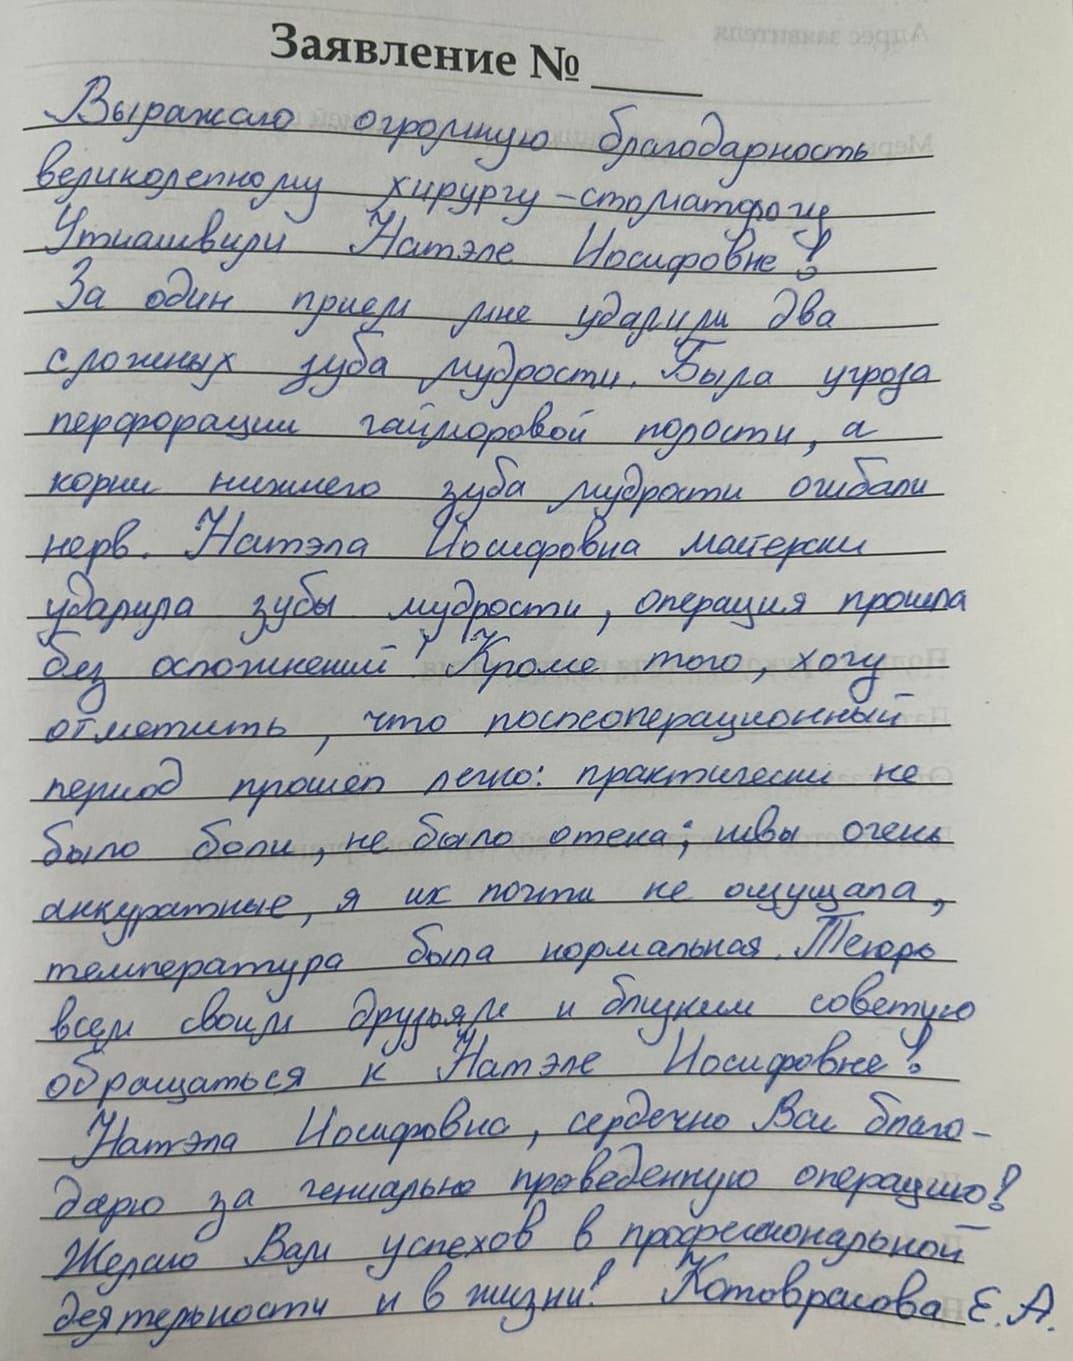 Заявление № ____
Выражаю огромную благодарность
великолепному хирургу-стоматологу
Утиашвили Натэле Иосифовне!
За один прием мне удалили два
сложных зуба мудрости. Была угроза
перфорации гайморовой полости, а
корни нижнего зуба мудрости огибали
нерв. Натэла Иосифовна мастерски
удалила зубы мудрости, операция прошла
без осложнений! Кроме того, хочу
отметить, что послеоперационный
период прошёл легко: практически не
было боли, не было отека; швы очень
аккуратные, я их почти не ощущала,
температура была нормальная. Теперь
всем своим друзьям и близким советую
обращаться к Натэле Иосифовне!
Натэла Иосифовна, сердечно Вас благо-
дарю за гениально проведенную операцию!
Желаю Вам успехов в профессиональной
деятельности и в жизни! Котоврасова Е.А.